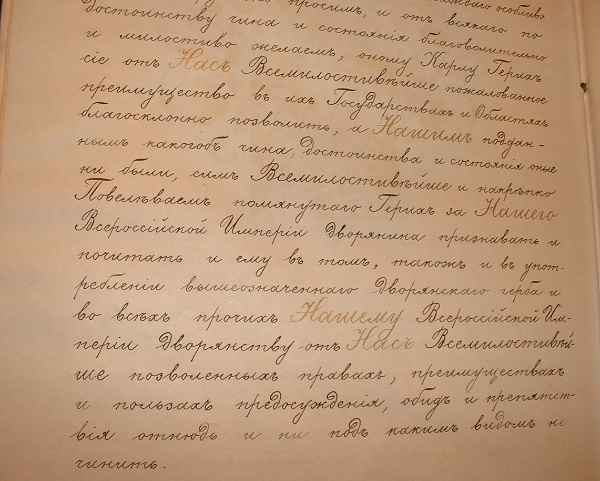 просимъ, и отъ всякаго по
достоинству чина и состоянія благоволительно
и милостиво желаемъ, оному Карлу Герихъ
сіе отъ Насъ Всемилостивѣйше пожалованное
преимущество въ ихъ Государствахъ и Областяхъ
благосклонно позволить, а Нашимъ поддан-
нымъ какогобъ чина, достоинства и состоянія оные
ни были, симъ Всемилостивѣйше и накрѣпко
Повелѣваемъ помянутаго Герихъ за Нашего
Всероссійской Имперіи Дворянина признавать и
почитать и ему въ томъ, такожъ и въ упот-
ребленіи вышеозначеннаго Дворянскаго герба и
во всѣхъ прочихъ Нашему Всероссійской Им-
періи Дворянству отъ Насъ Всемилостивѣй-
ше позволенныхъ правахъ, преимуществахъ
и пользахъ предосужденія, обидъ и препятст-
вія отнюдь и ни подъ какимъ видомъ не
чинить.